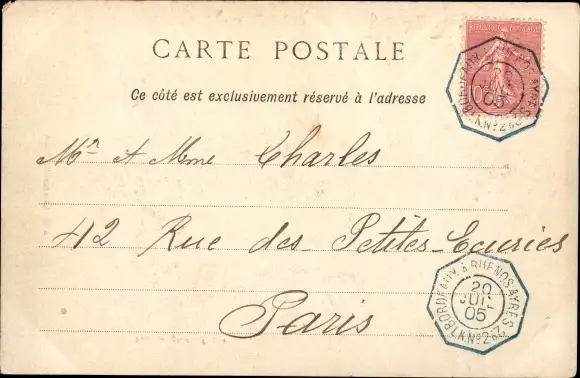 RÉPUBLIQUE FRANÇAISE
10
BORDEAUX A BUENOS-AYRES
05
L.K. Nº 2
CARTE POSTALE
Ce côté est exclusivement réservé à l'adresse
Mr et Mme Charles
42 Rue des Petites-Ecuries
Paris
BORDEAUX A BUENOS-AYRES
20
JUIL
05
L.K. Nº 2